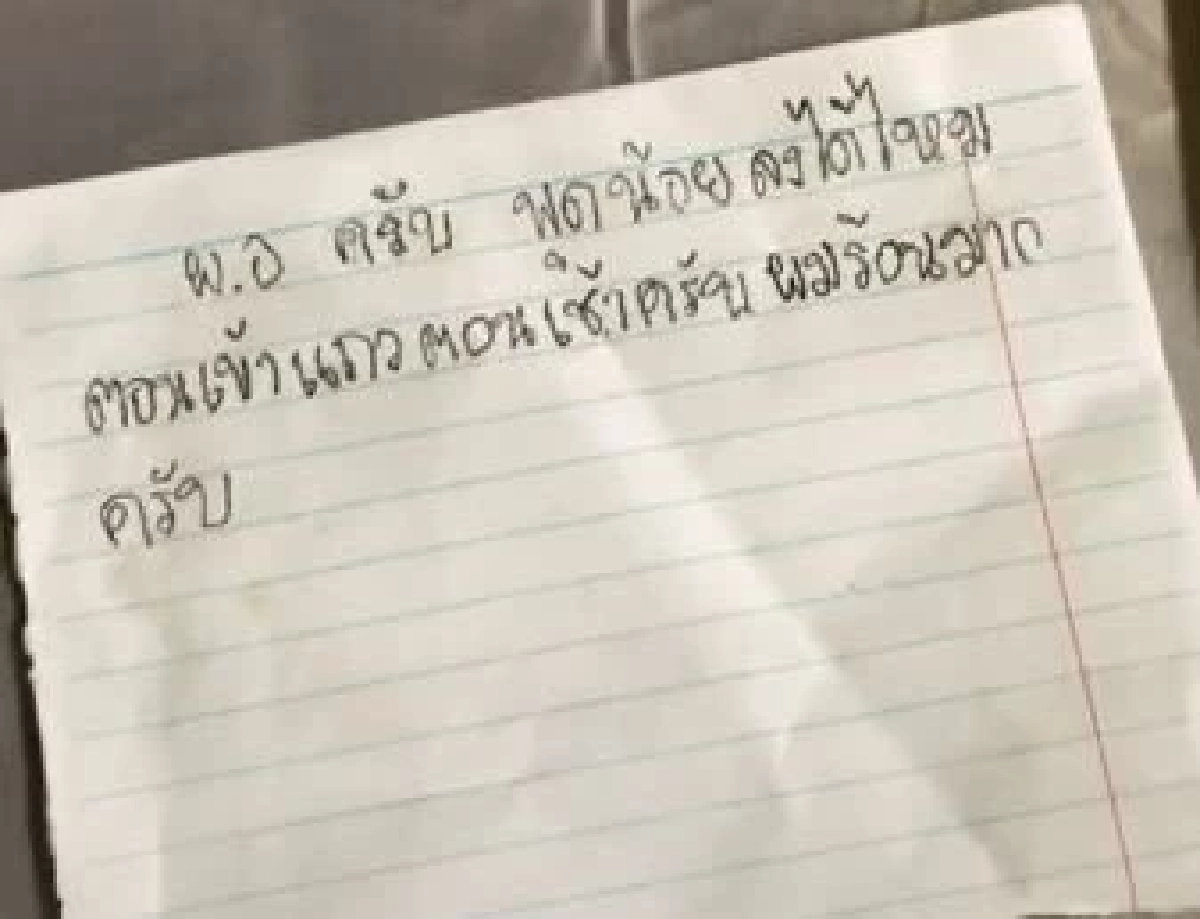 ผ.อ ครับ พูดน้อยลงได้ไหม
ตอนเข้าแถวตอนเช้าครับ ผมร้อนมาก
ครับ